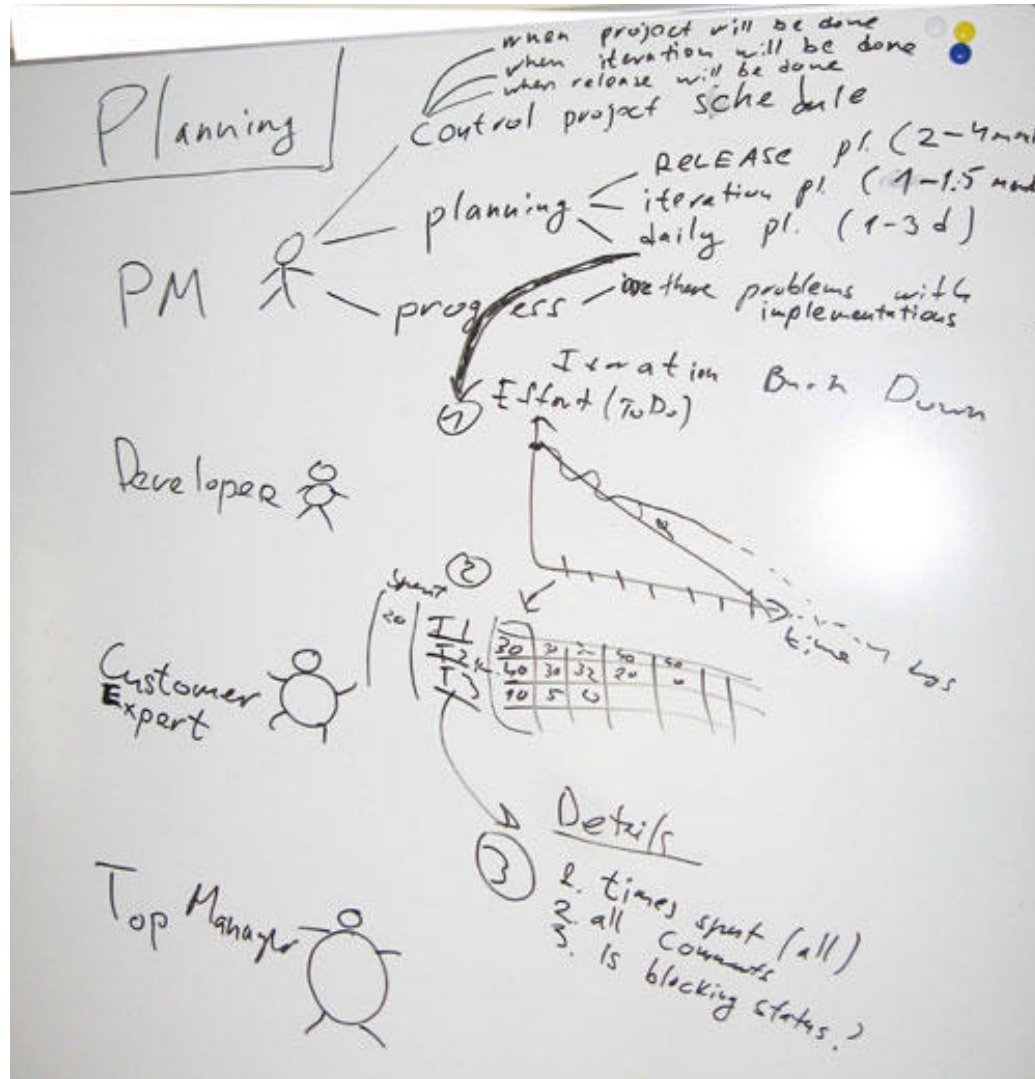 Planning
when project will be done
when iteration will be done
when release will be done
control project schedule
planning
RELEASE pl. (2-4
iteration pl. (1-1.5
daily pl. (1-3 d)
PM
progress
there problems with
implementations
Iteration Burn Down
1
Effort (ToDo)
Developer
time
2
spent
20
I1
I2
I3
30
40 30 32 20 0
10 5 0
Customer
Expert
3
Details
1. times spent (all)
2. all comments
3. is blocking status?
Top Manager